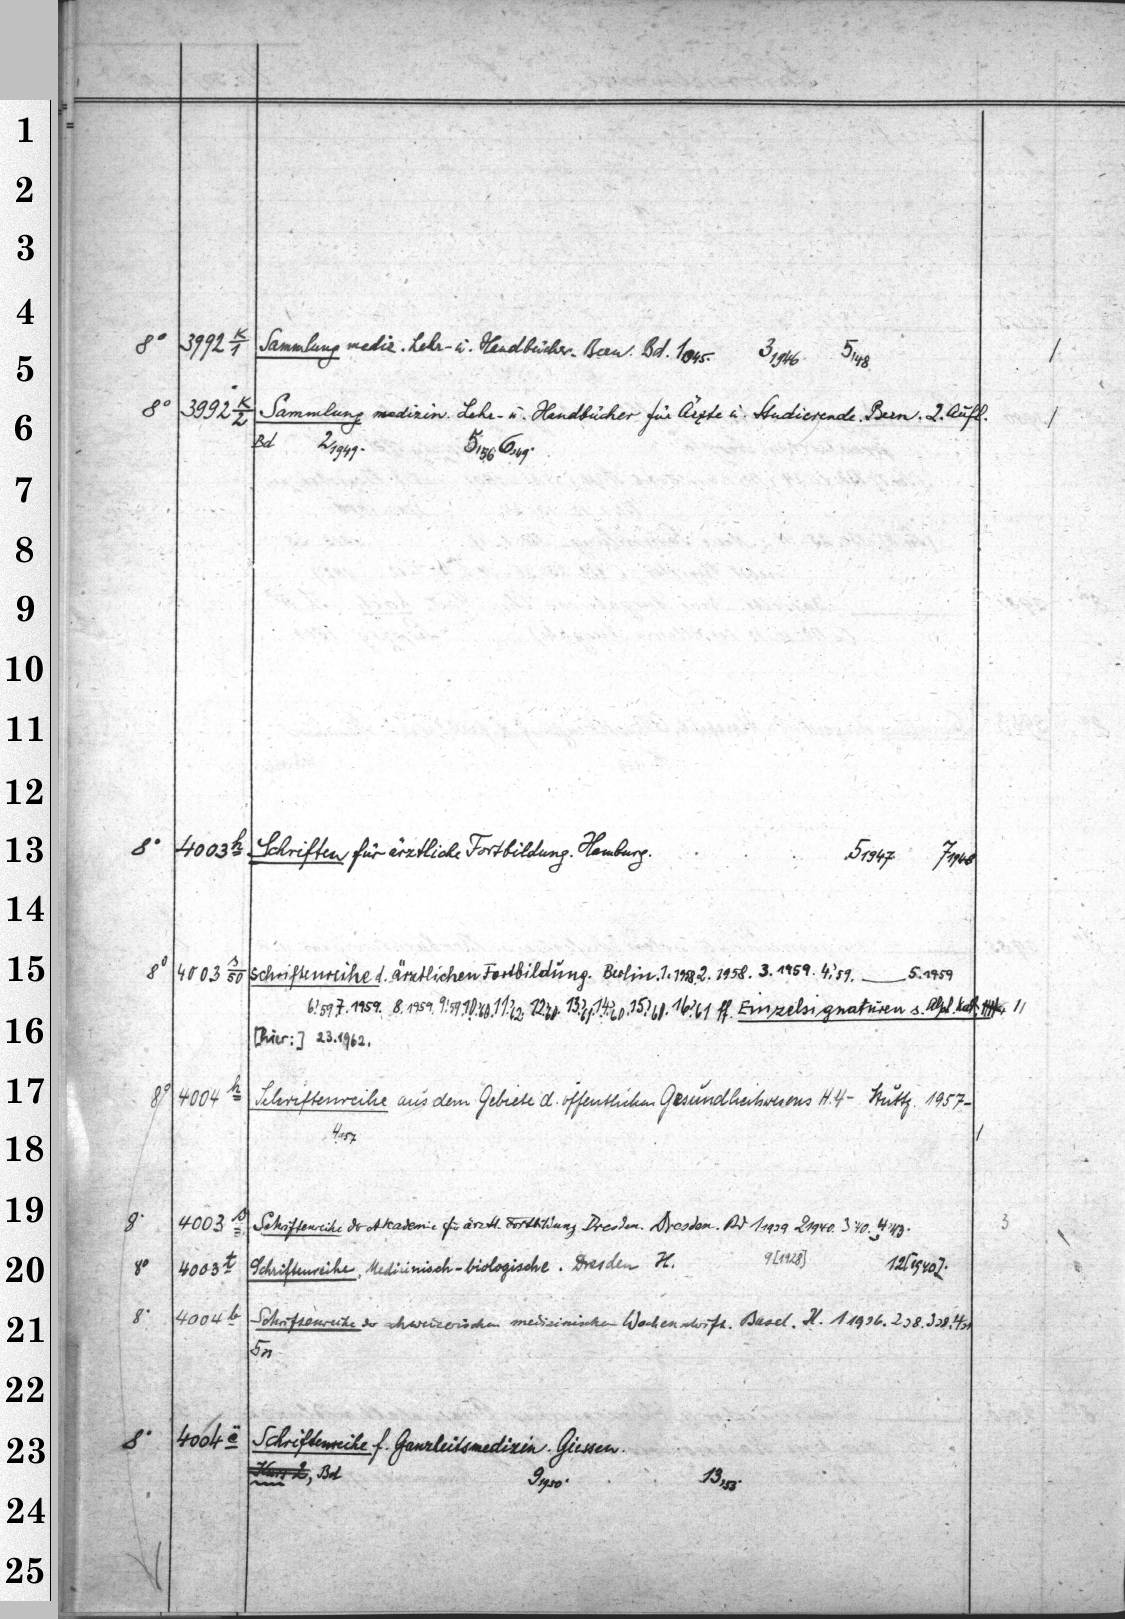 1
2
3
4
8° 3992 K/1 Sammlung mediz. Lehr- u. Handbücher. Bern. Bd. 1945. 3,1946 5,48 /
5
8° 3992 K/2 Sammlung medizin. Lehr- u. Handbücher für Ärzte u. Studierende. Bern. 2. Aufl. /
6
Bd 2,1949. 5,56 6,49.
7
8
9
10
11
12
13 8° 4003 h Schriften für ärztliche Fortbildung. Hamburg. 5 1947 7 1948
14
15 8° 4003 s/50 Schriftenreihe d. ärztlichen Fortbildung. Berlin. 1. 1958 2. 1958. 3. 1959. 4.'59. 5. 1959
6.'59 7. 1959. 8. 1959. 9.'59 10.'60. 11.'62 12.'60. 13.'61 14.'60. 15.'60. 16.'61 ff. Einzelsignaturen s. Alph. Kat. //
16 [hier:] 23.1962.
17 8° 4004 h Schriftenreihe aus dem Gebiete d. öffentlichen Gesundheitswesens H.4- Stuttg. 1957-
18 4,1957 /
19 8° 4003 s Schriftenreihe der Akademie für ärztl. Fortbildung Dresden. Dresden. Bd 1 1939 2 1940. 3 '40. 4 '43. 3
20 8° 4003 t Schriftenreihe, Medizinisch-biologische. Dresden H. 9 [1928] 12 [1940].
21 8° 4004 b Schriftenreihe der schweizerischen medizinischen Wochenschrift. Basel. H. 1 1936. 2 38. 3 38. 4
5
22
23 8° 4004 e Schriftenreihe f. Ganzheitsmedizin. Giessen.
Bd 9,1950. 13,53.
24
25